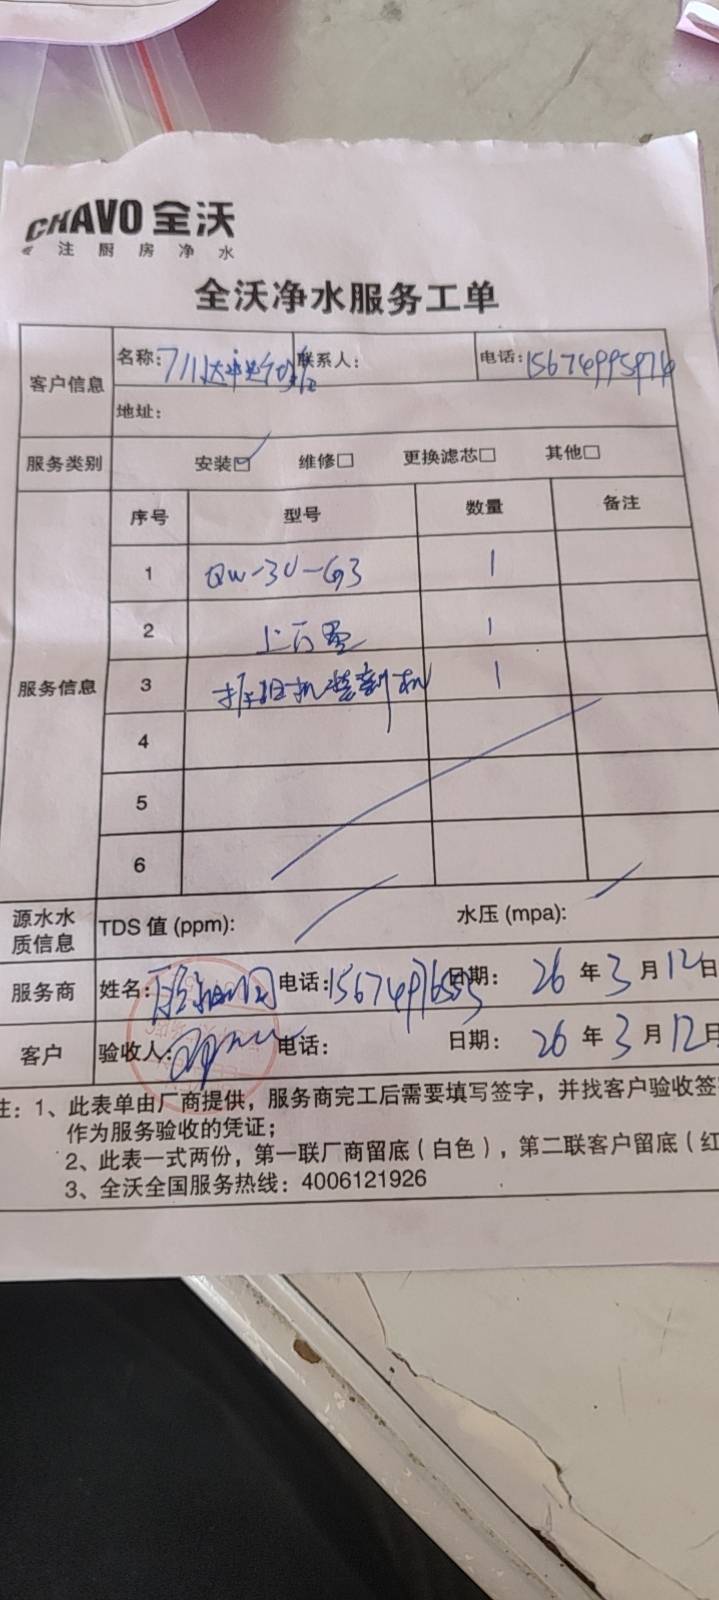 CHAVO 全沃
注厨房净水
全沃净水服务工单
客户信息 名称: 联系人: 电话:
地址:
服务类别 安装☑ 维修□ 更换滤芯□ 其他□
服务信息 序号 型号 数量 备注
1 QW-3U-G3 1
2 1
3 拆旧机装新机 1
4
5
6
源水水质信息 TDS 值 (ppm): 水压 (mpa):
服务商 姓名: 电话: 日期: 26 年 3 月 12 日
客户 验收人: 电话: 日期: 26 年 3 月 12 日
注: 1、此表单由厂商提供，服务商完工后需要填写签字，并找客户验收签
作为服务验收的凭证；
2、此表一式两份，第一联厂商留底（白色），第二联客户留底（红
3、全沃全国服务热线：4006121926